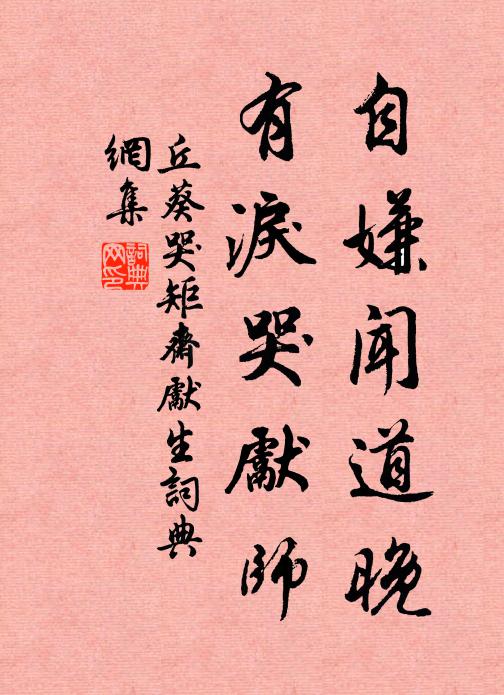 自嫌聞道晚
有淚哭獻師
丘葵哭矩齋獻生詞典
網集
詞典
网印